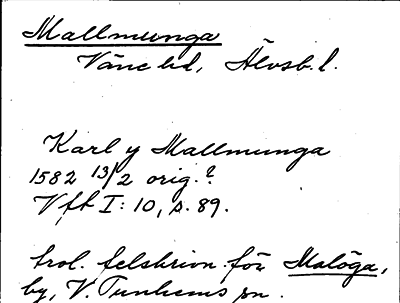 Mallmunga
Väne hd, Älvsb. l.
Karl y Mallmunga
1582 13/2 orig.?
Vfb I: 10, s. 89.
trol. felskrivn. för Malöga,
by, V. Tunhems sn.